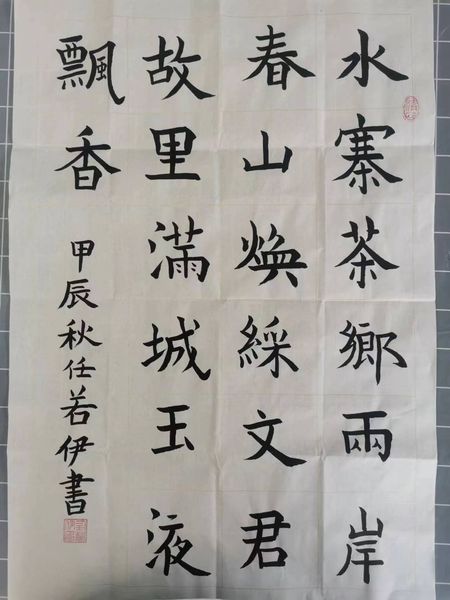 水寨茶鄉兩岸
春山焕綵文君
故里滿城玉液
飄香
甲辰秋任若伊書